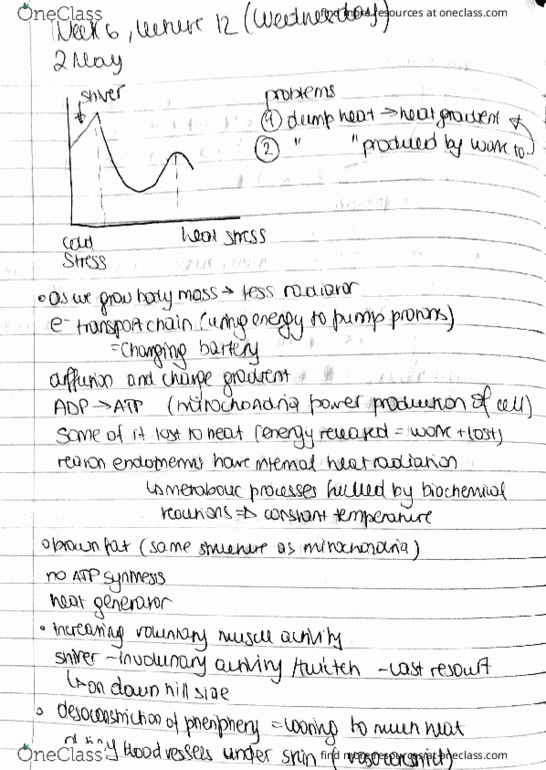 OneClass find more resources at oneclass.com
Week 6, lecture 12 (Wednesday)
2 May
shiver
problems
① dump heat → heat gradient &
② " " produced by work to
cold
stress
heat stress
• as we grow body mass → less radiator
e- transport chain (using energy to pump protons)
= Charging battery
diffusion and charge gradient
ADP → ATP (mitochondria power production of cell)
some of it lost to heat (energy released = work + lost)
reason endotherms have internal heat radiation
↳ metabolic processes fuelled by biochemical
reactions ⇒ constant temperature
• brown fat (same structure as mitochondria)
no ATP synthesis
heat generator
• increasing voluntary muscle activity
shiver - involunary activity /twitch - last resort
↳ on down hill side
• of periphery = loosing to much heat
blood vessels under skin (vasoconstrict)
OneClass find more resources at oneclass.com